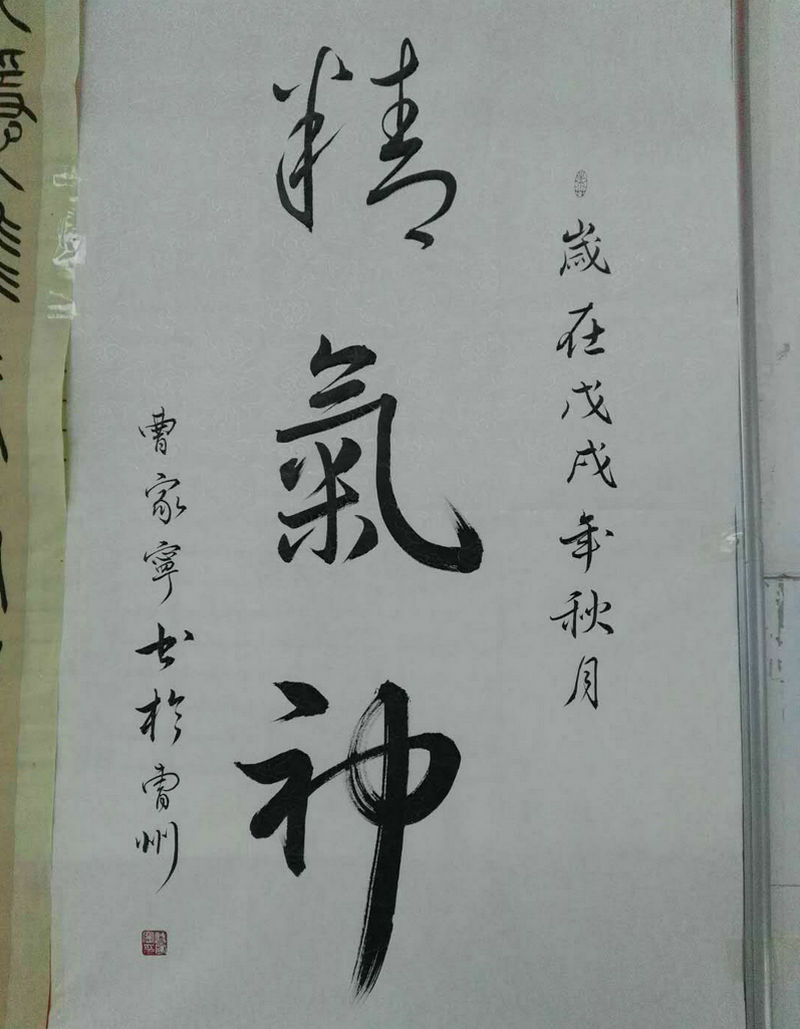 歲在戊戌年秋月
精氣神
曹家寧书於雷州